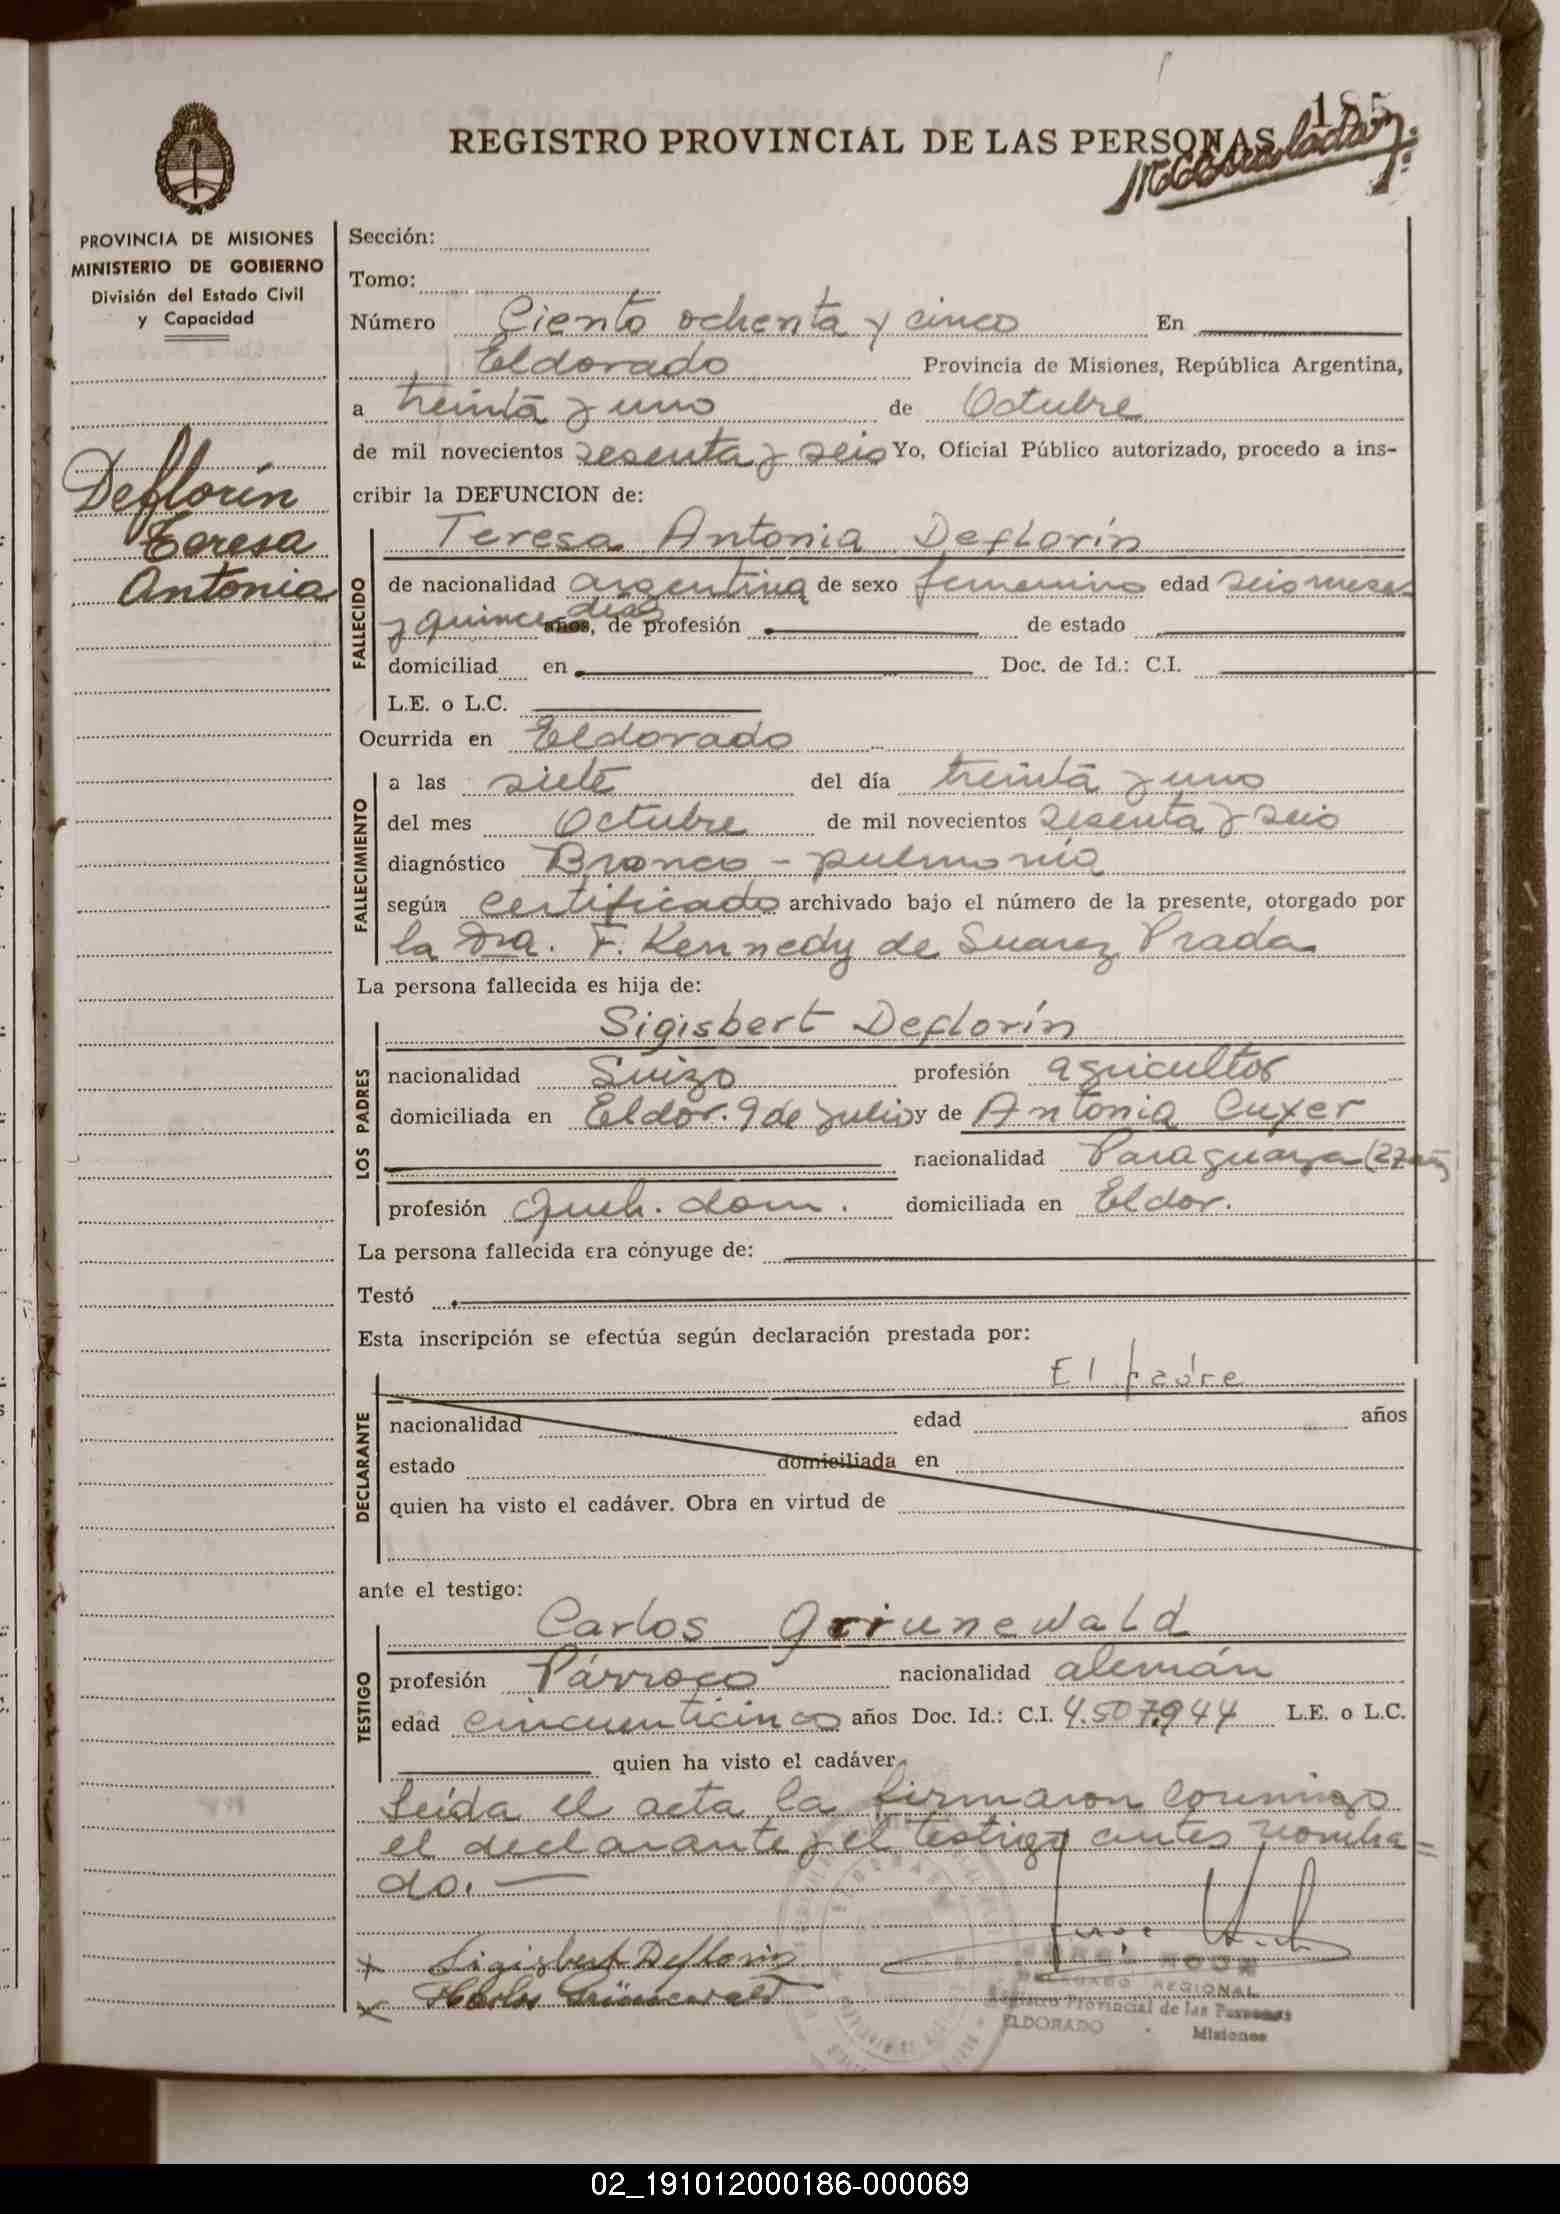 185
REGISTRO PROVINCIAL DE LAS PERSONAS
PROVINCIA DE MISIONES
MINISTERIO DE GOBIERNO
División del Estado Civil
y Capacidad
Deflorín
Teresa
Antonia
Sección:
Tomo:
Número Ciento ochenta y cinco En
Eldorado Provincia de Misiones, República Argentina,
a treinta y uno de Octubre
de mil novecientos sesenta y seis Yo, Oficial Público autorizado, procedo a ins-
cribir la DEFUNCION de:
FALLECIDO
Teresa Antonia Deflorín
de nacionalidad argentina de sexo femenino edad seis meses
y quince días años, de profesión de estado
domiciliad en Doc. de Id.: C.I.
L.E. o L.C.
Ocurrida en Eldorado
FALLECIMIENTO
a las siete del día treinta y uno
del mes Octubre de mil novecientos sesenta y seis
diagnóstico Bronco - pulmonía
según certificado archivado bajo el número de la presente, otorgado por
la Dra. F. Kennedy de Suarez Prada
La persona fallecida es hija de:
LOS PADRES
Sigisbert Deflorín
nacionalidad Suizo profesión agricultor
domiciliada en Eldor. 9 de Julio y de Antonia Cuyer
nacionalidad Paraguaya (27 añ
profesión queh. dom. domiciliada en Eldor.
La persona fallecida era cónyuge de:
Testó
Esta inscripción se efectúa según declaración prestada por:
DECLARANTE
El padre
nacionalidad edad años
estado domiciliada en
quien ha visto el cadáver. Obra en virtud de
ante el testigo:
TESTIGO
Carlos Griunewald
profesión Párroco nacionalidad alemán
edad cincuenticinco años Doc. Id.: C.I. 4.507.944 L.E. o L.C.
quien ha visto el cadáver.
Leída el acta la firmaron conmigo
el declarante y el testigo antes nombra=
do.
x Sigisbert Deflorin
x Karlos Grünewald
DELEGADO REGIONAL
Registro Provincial de las Personas
ELDORADO - Misiones
02_191012000186-000069